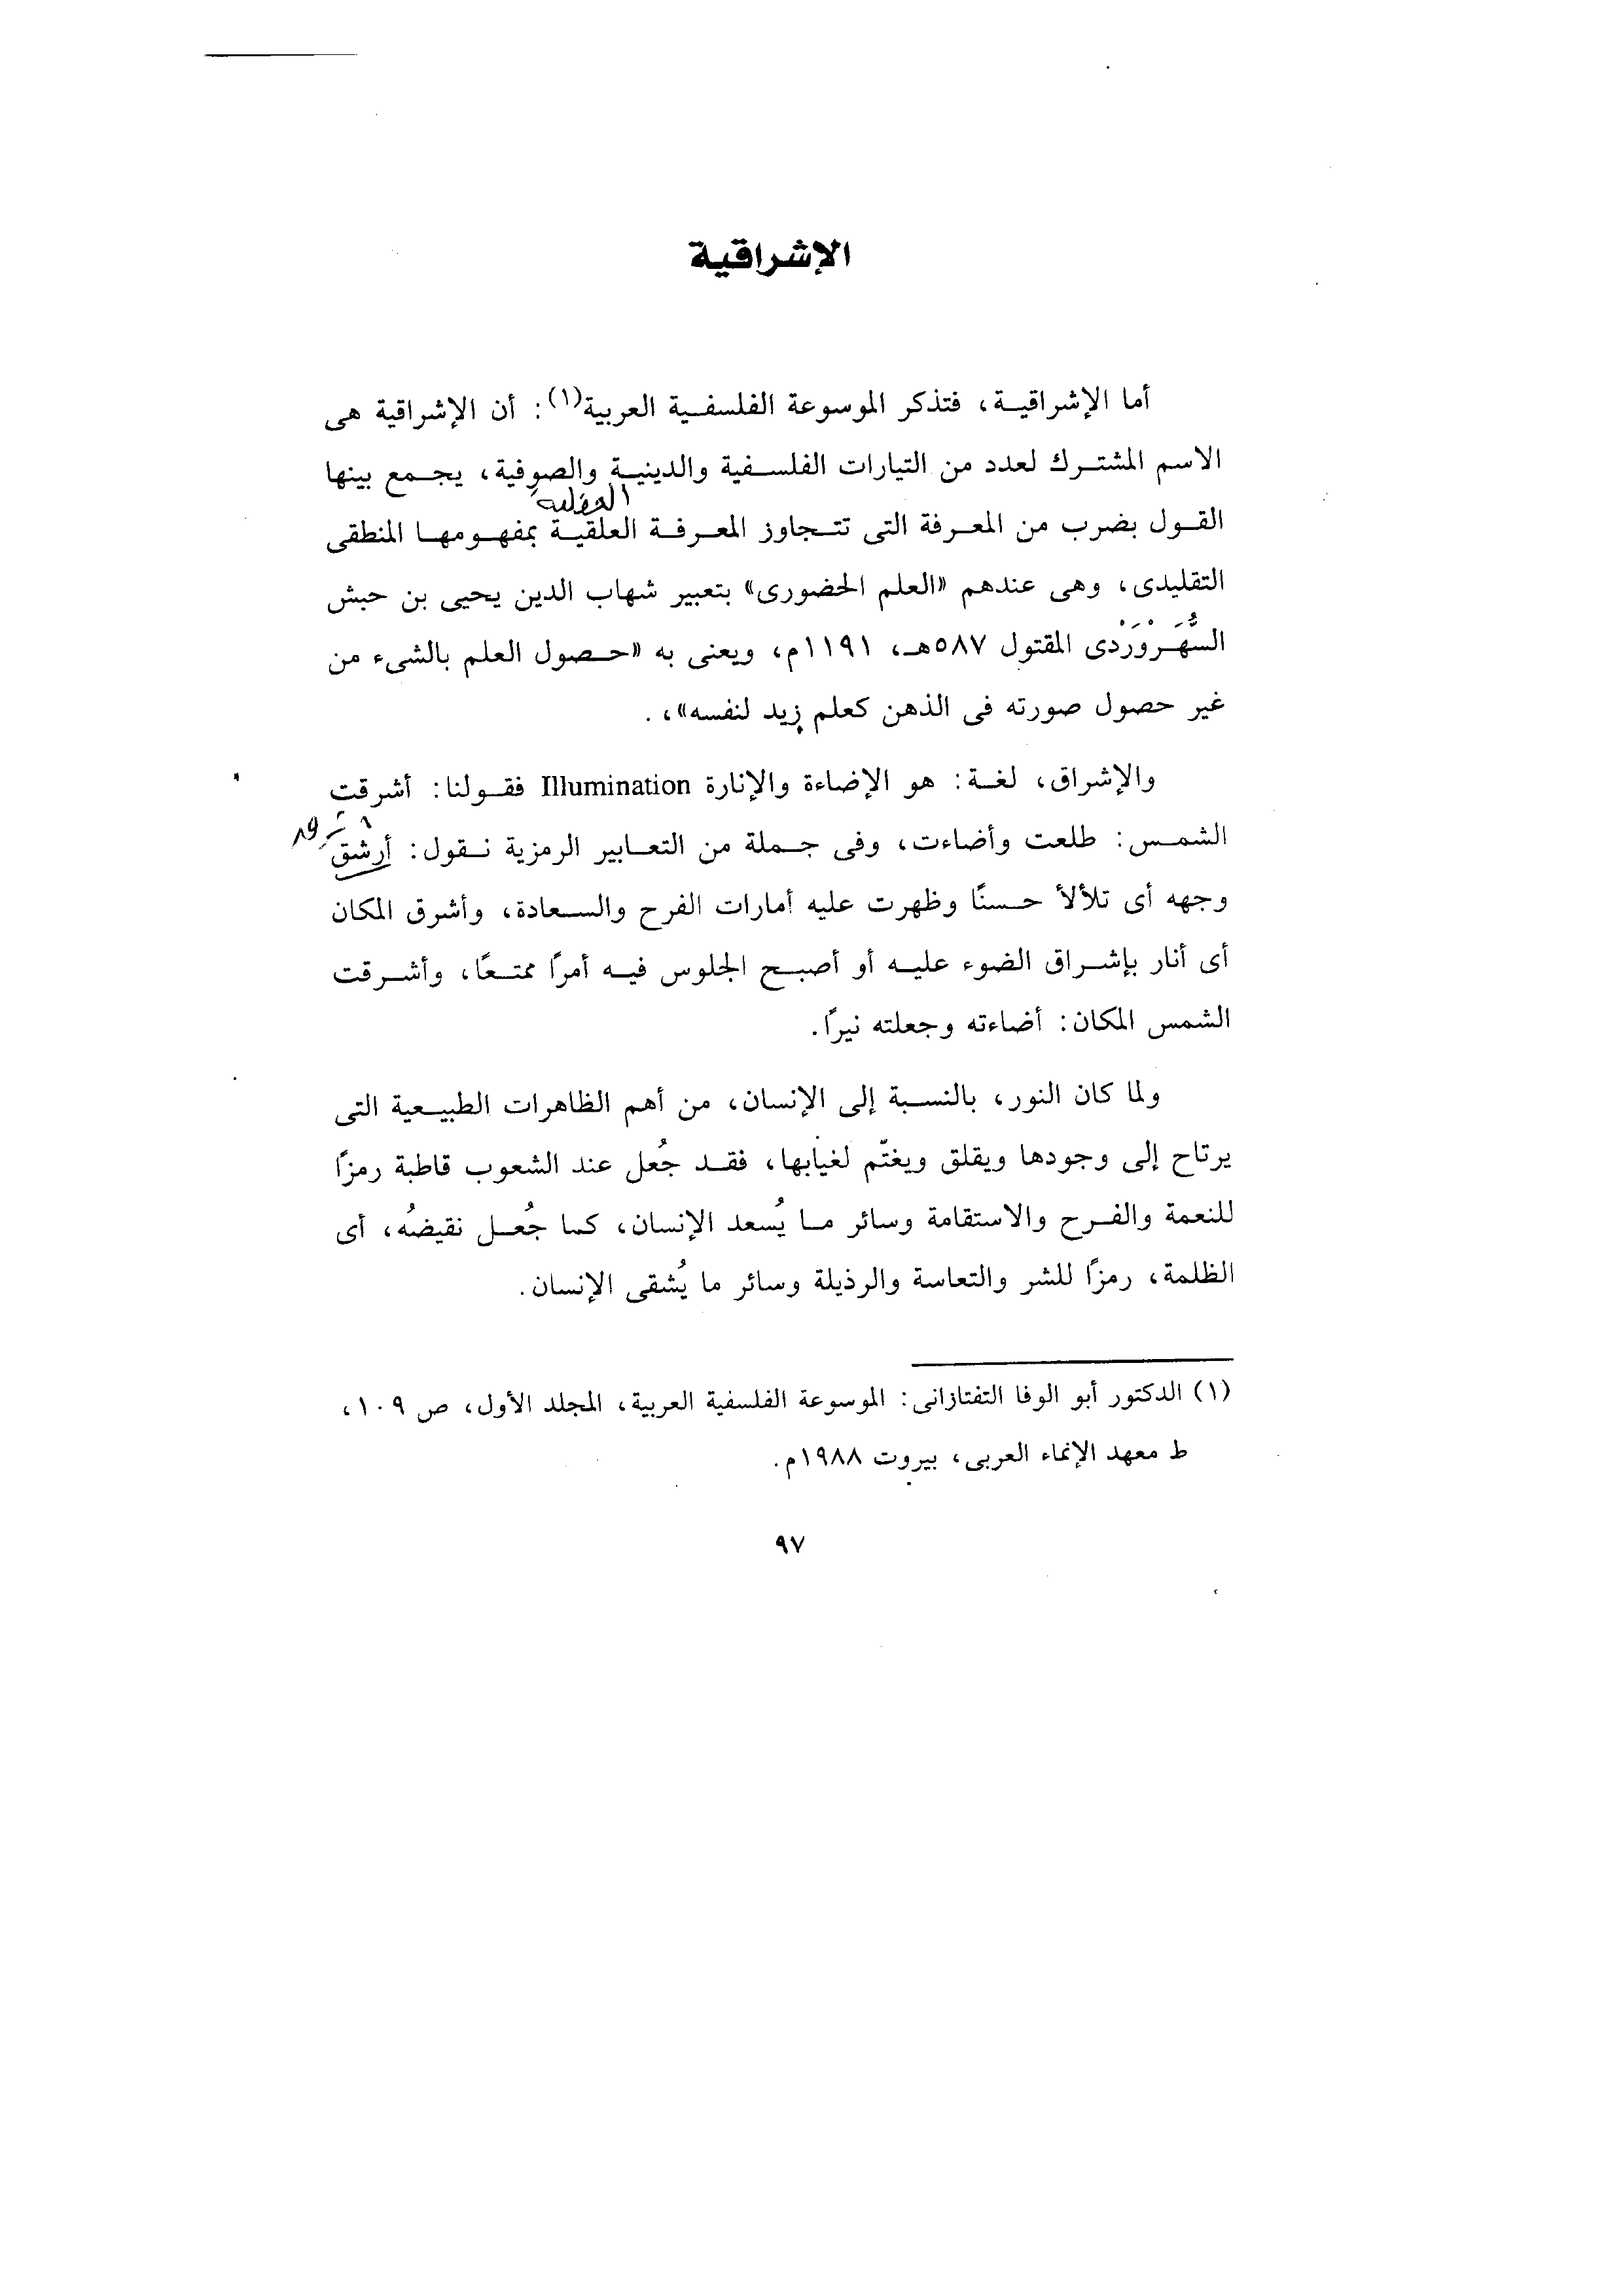 الإشراقية
أما الإشراقية، فتذكر الموسوعة الفلسفية العربية(١): أن الإشراقية هى
الاسم المشترك لعدد من التيارات الفلسفية والدينية والصوفية، يجمع بينها
العقلية
القول بضرب من المعرفة التى تتجاوز المعرفة العلقية بمفهومها المنطقى
التقليدى، وهى عندهم «العلم الحضورى» بتعبير شهاب الدين يحيى بن حبش
السُّهَرْوَرْدى المقتول ٥٨٧هـ، ١١٩١م، ويعنى به «حصول العلم بالشىء من
غير حصول صورته فى الذهن كعلم زيد لنفسه»، .
والإشراق، لغة: هو الإضاءة والإنارة Illumination فقولنا: أشرقت
الشمس: طلعت وأضاءت، وفى جملة من التعابير الرمزية نقول: أرشق
وجهه أى تلألأ حسنًا وظهرت عليه أمارات الفرح والسعادة، وأشرق المكان
أى أنار بإشراق الضوء عليه أو أصبح الجلوس فيه أمرًا ممتعًا، وأشرقت
الشمس المكان: أضاءته وجعلته نيرًا.
ولما كان النور، بالنسبة إلى الإنسان، من أهم الظاهرات الطبيعية التى
يرتاح إلى وجودها ويقلق ويغتّم لغيابها، فقد جُعل عند الشعوب قاطبة رمزًا
للنعمة والفرح والاستقامة وسائر ما يُسعد الإنسان، كما جُعل نقيضُه، أى
الظلمة، رمزًا للشر والتعاسة والرذيلة وسائر ما يُشقى الإنسان.
(١) الدكتور أبو الوفا التفتازانى: الموسوعة الفلسفية العربية، المجلد الأول، ص ١٠٩،
ط معهد الإنماء العربى، بيروت ١٩٨٨م.
٩٧